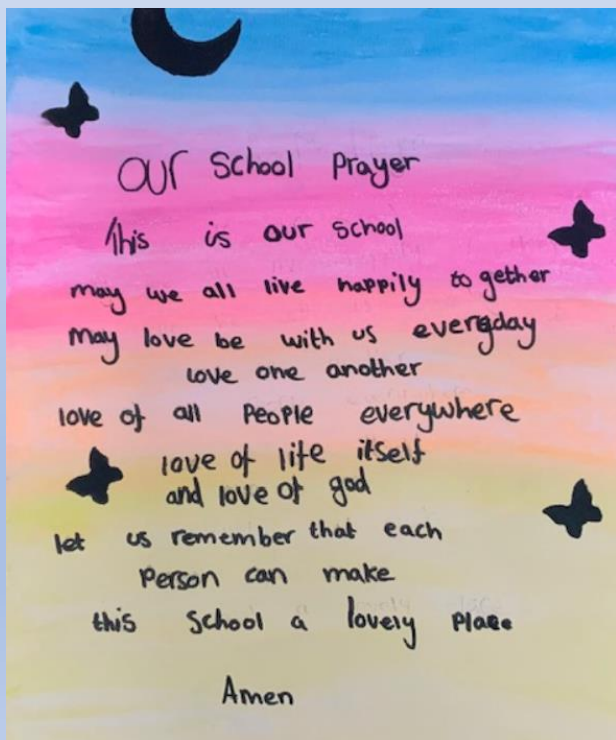 our School Prayer
This is our school
may we all live happily together
May love be with us everyday
love one another
love of all People everywhere
love of life itself
and love of god
let us remember that each
Person can make
this School a lovely Place
Amen